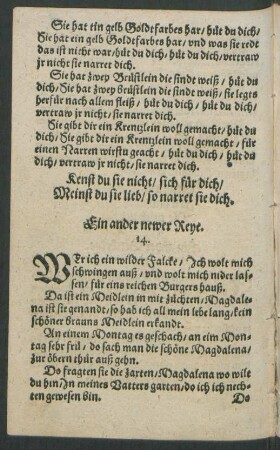 Sie hat ein gelb Goldtfarbes har/ hüt du dich/
Sie hat ein gelb Goldtfarbes har/ vnd was sie redt
das ist nicht war/ hüt du dich/ hüt du dich/ vertraw
jr nicht sie narret dich.
Sie hat zwey Brüstlein die sindt weiß/ hüt du
dich/ Sie hat zwey brüstlein die sindt weiß/ sie legts
herfür nach allem fleiß/ hüt du dich/ hüt du dich/
vertraw jr nicht/ sie narret dich.
Sie gibt dir ein Krentzlein woll gemacht/ hüt du
dich/ Sie gibt dir ein Krentzlein woll gemacht/ für
einen Narren wirstu geacht/ hüt du dich/ hüt du
dich/ vertraw jr nicht/ sie narret dich.
Kenst du sie nicht/ sich für dich/
Meinst du sie lieb/ so narret sie dich.
Ein ander newer Reye.
14.
WEr ich ein wilder Falcke/ Ich wolt mich
schwingen auß/ vnd wolt mich nider las-
sen/ für eins reichen Burgers hauß.
Da ist ein Meidlein in mit züchten/ Magdale-
na ist sie genandt/ so hab ich all mein lebe lang/ kein
schöner brauns Meidlein erkandt.
An einem Montag es geschach/ an eim Mon-
tag sehr frü/ do sach man die schöne Magdalena/
zur öbern thür auß gehn.
Do fragten sie die zarten/ Magdalena wo wilt
du hin/ In meines Vatters garten/ do ich ich nech-
ten gewesen bin.
Do